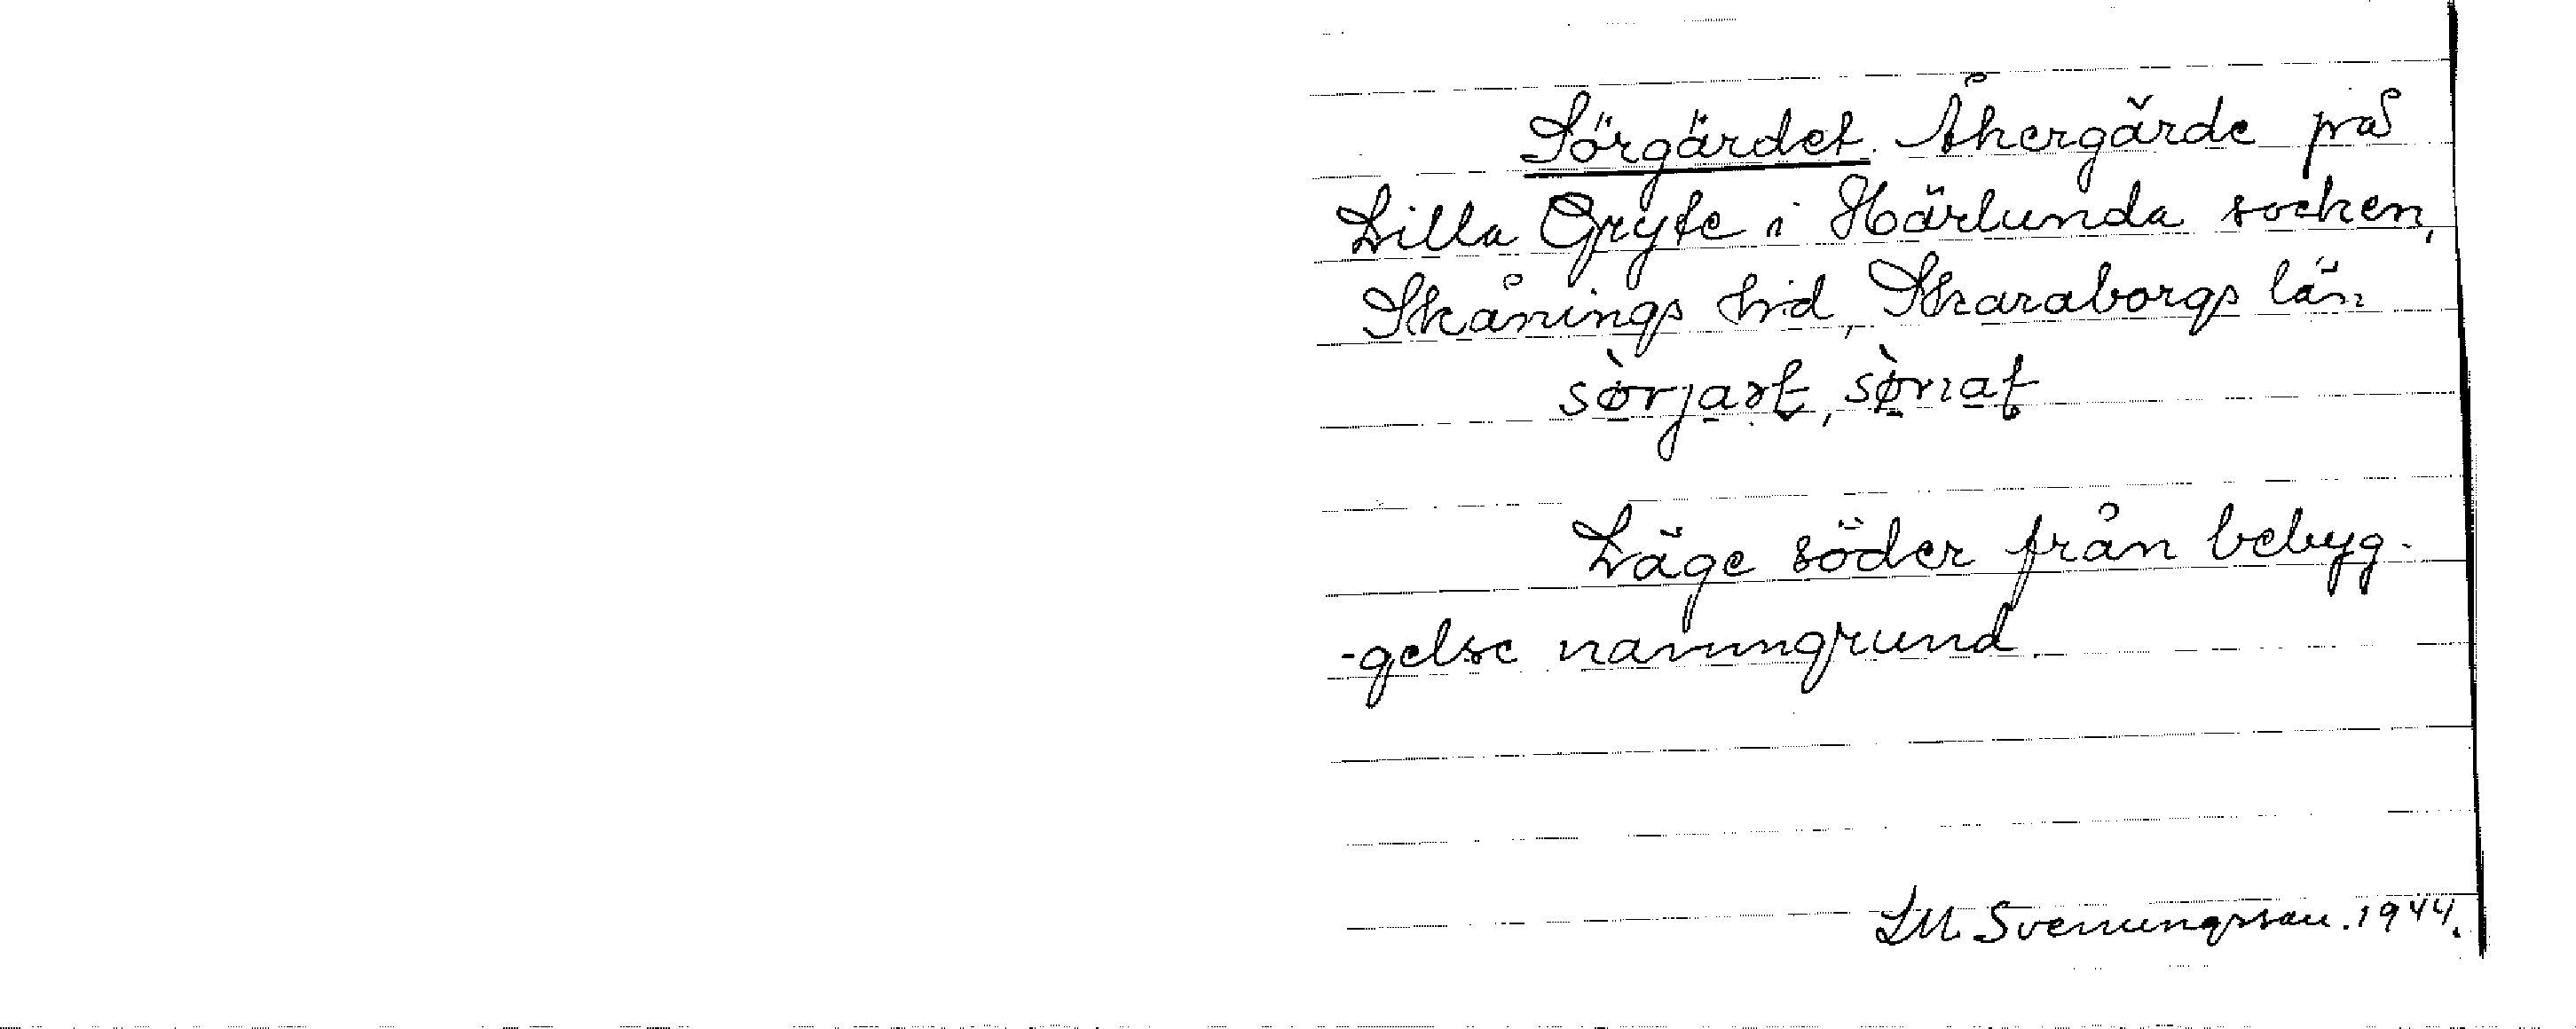 Sörgärdet. Åkergärde på
Lilla Gryte i Härlunda socken,
Skånings hd, Skaraborgs län
sòrjart, sòrıat
Läge söder från bebyg-
-gelse namngrund
LM. Svenungsson. 1944.